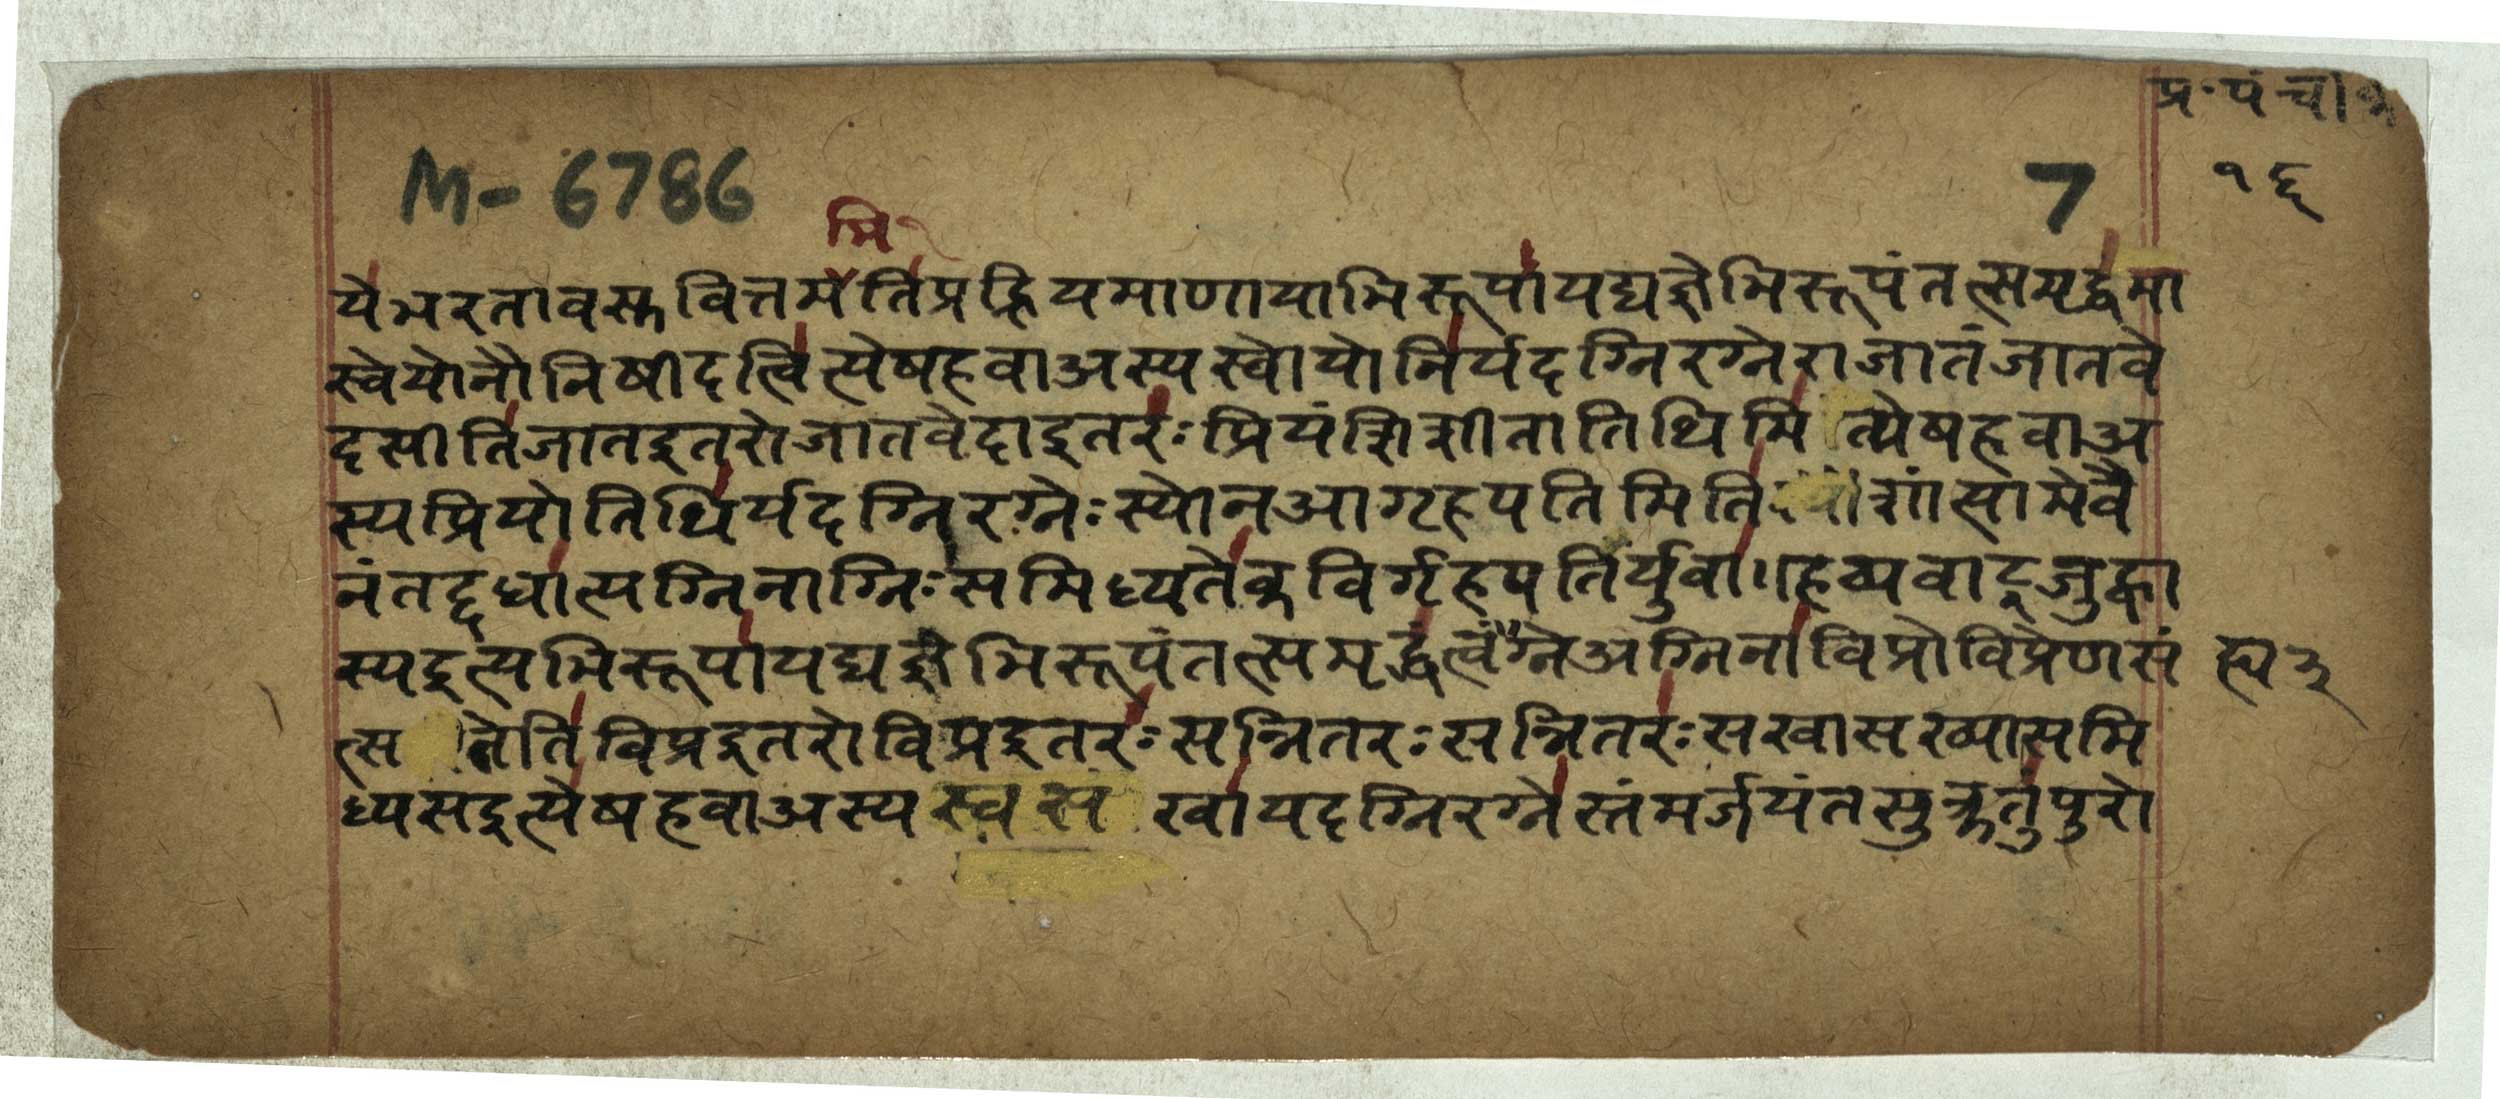 प्र॰पं॰चि॰१
M- 6786
7
१६
मि २
येभरतावसुवित्तमेतिप्रह्रियमाणायाभिरूपायद्यज्ञेभिरूपंतत्समृद्धमा
स्वेयोनौनिषीदत्वित्येषहवाअस्यस्वोयोनिर्यदग्निरग्नेराजातंजातवे
दसीतिजातइतरोजातवेदाइतरःप्रियंशिशीतातिथिमित्येषहवाअ
स्यप्रियोतिथिर्यदग्निरग्नेःस्योनआगृहपतिमितिशांत्यामेवै
नंतद्दधात्यग्निनाग्निःसमिध्यतेकविर्गृहपतिर्युवा॥हव्यवाड्जुह्वा
स्यइत्यभिरूपायद्यज्ञेभिरूपंतत्समृद्धंत्वंग्नेअग्निनाविप्रोविप्रेणसं
त्स तेतिविप्रइतरोविप्रइतरःसन्नितरःसन्नितरःसखासख्यासमि
ध्यसइत्येषहवाअस्यस्वसखायदग्निरग्नेस्तंमर्जयंतसुक्रतुंपुरो